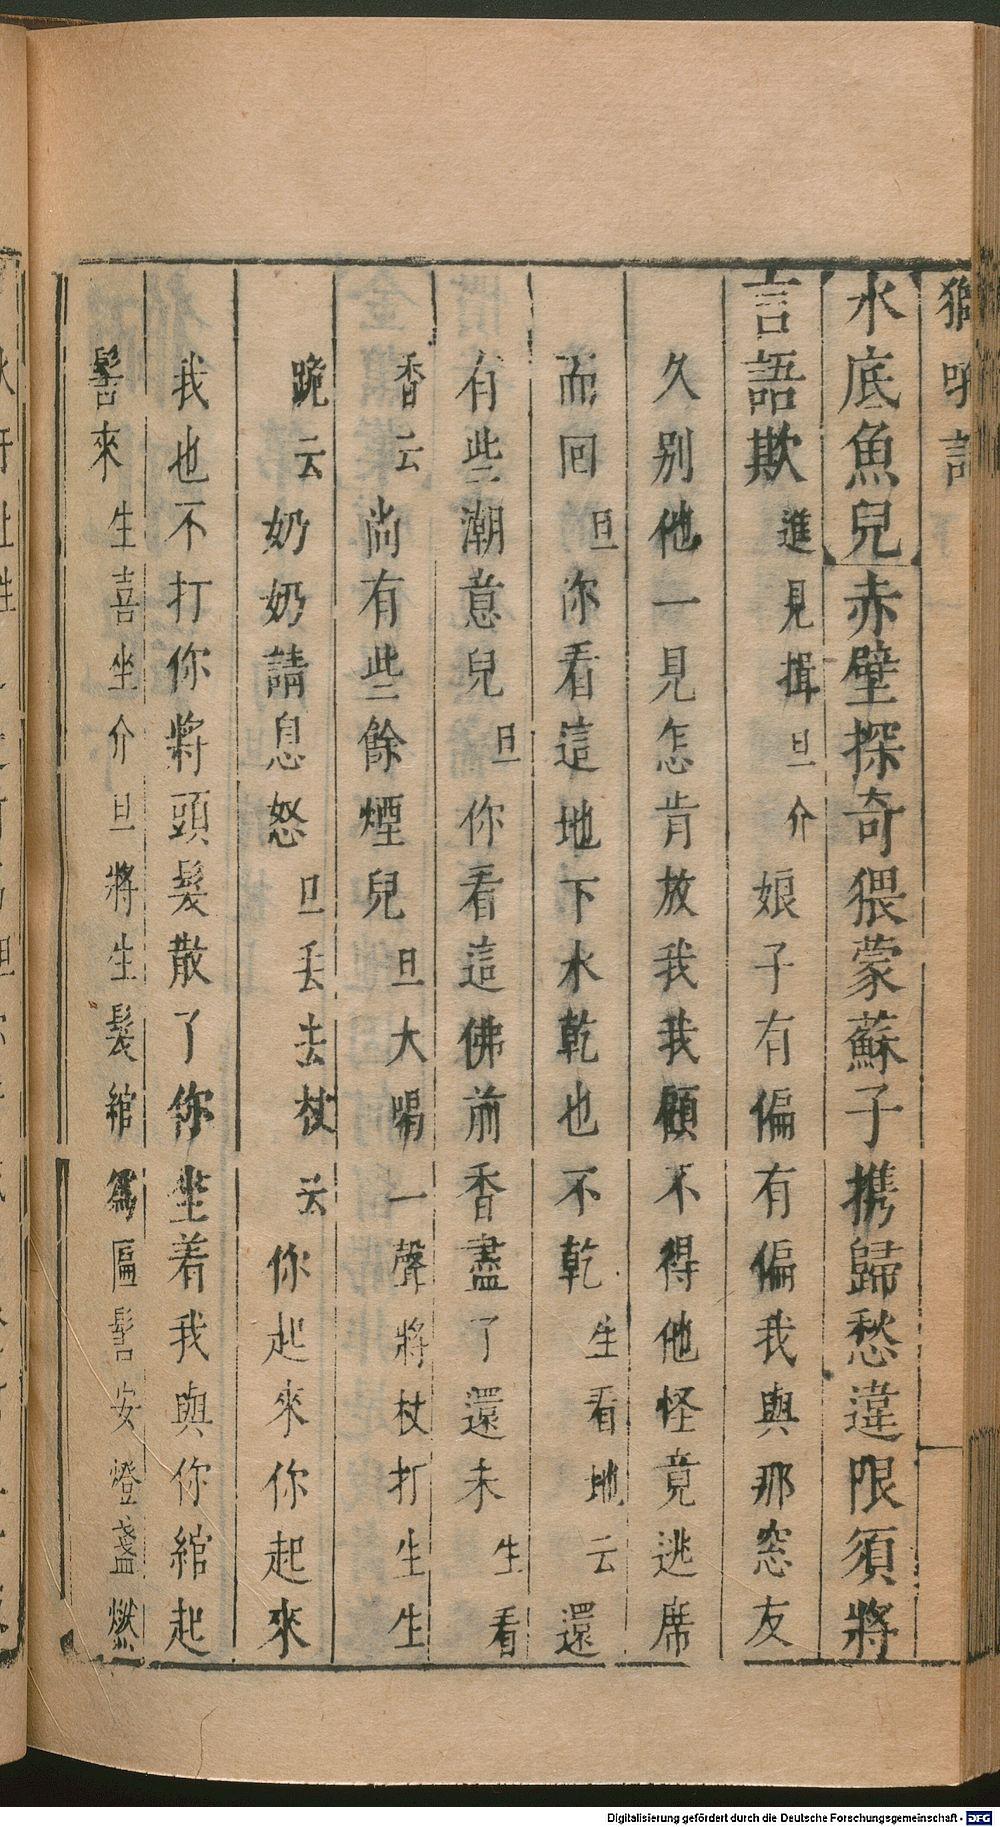 獅吼記
水底魚兒赤壁探奇猥蒙蘇子携歸愁違限須將
言語欺進見揖旦介娘子有偏有偏我與那窓友
久别他一見怎肯放我我顧不得他怪竟逃席
而回旦你看這地下水乾也不乾生看地云還
有些潮意兒旦你看這佛前香盡了還未生看
香云尚有些餘煙兒旦大喝一聲將杖打生生
跪云奶奶請息怒旦丢去杖云你起來你起來
我也不打你將頭髮散了你坐着我與你綰起
髻來生喜坐介旦將生髮綰爲匾髻安燈盞燃
Digitalisierung gefördert durch die Deutsche Forschungsgemeinschaft - DFG